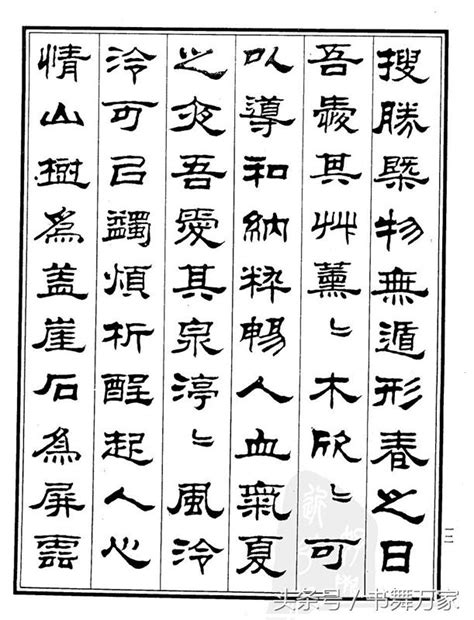 搜勝槩物無遁形春之日
吾愛其艸薰〻木欣〻可
以導和納粹暢人血氣夏
之夜吾愛其泉渟〻風泠
泠可㠯蠲煩析酲起人心
情山樹爲盖崖石爲屏雲
头条号 / 书舞万家